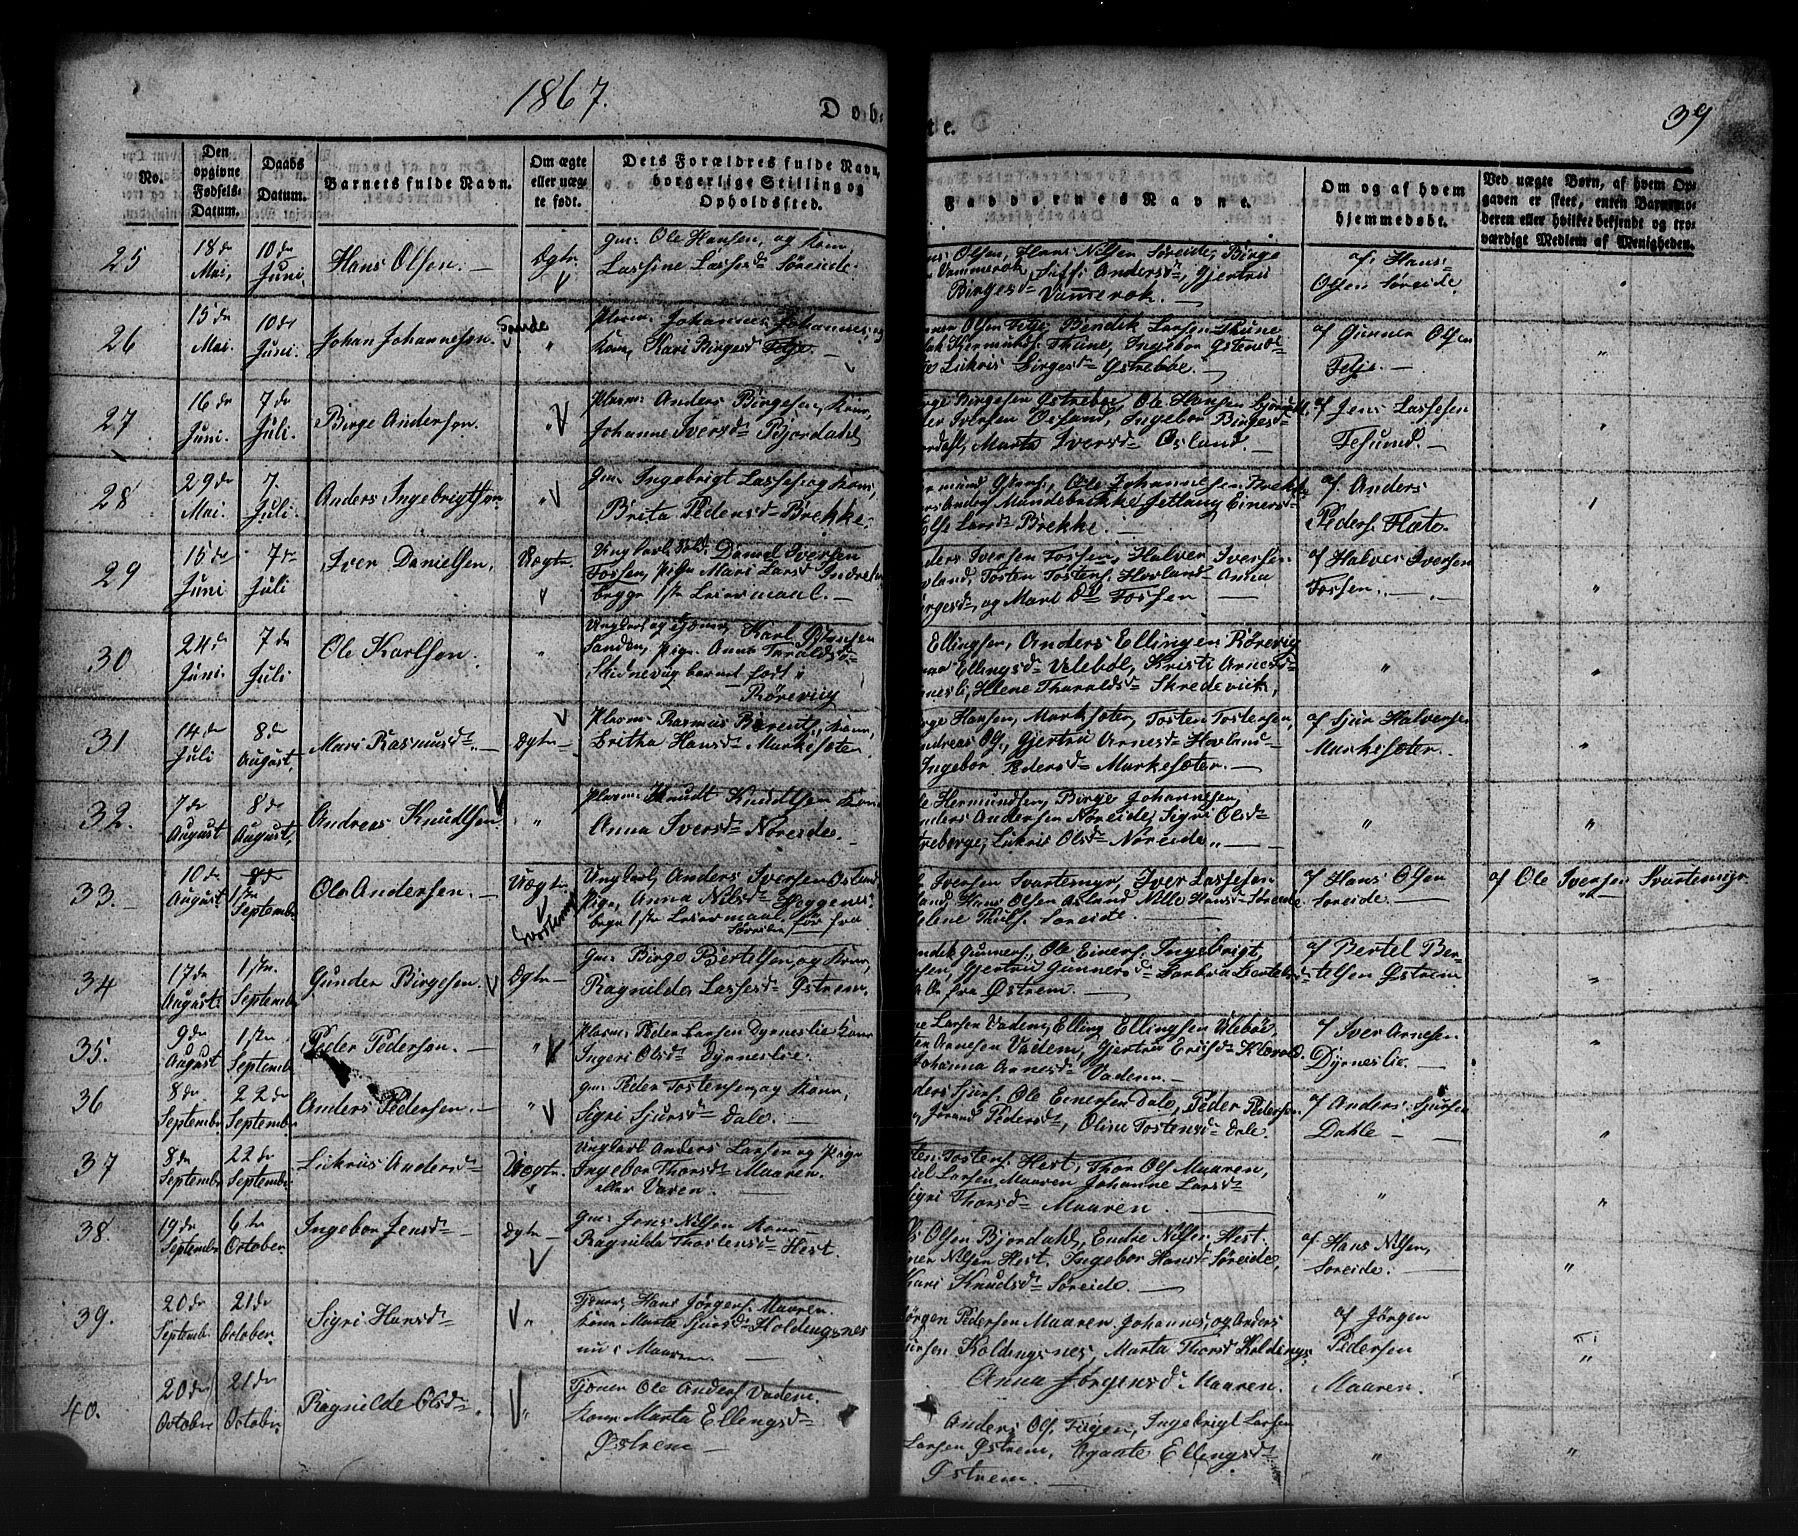 1867.
Døb-
te.
39
No.
Den opgivne Fødsels-Datum.
Daabs Datum.
Barnets fulde Navn.
Om ægte eller uæg-te født.
Dets Forældres fulde Navn, borgerlige Stilling og Opholdssted.
Faddernes Navne.
Om og af hvem hjemmedøbt.
Ved uægte Børn, af hvem Op-gaven er skeet, enten Barnemo-deren eller hvilket bekjendt og tro-værdigt Medlem af Menigheden.
25 18de Mai, 10de Juni. Hans Olsen. Ægte
gm: Ole Hansen, og Kone,
Lassine Lassesd Søreide.
Olsen, Hans Nilsen Søreide, Birge
Vammerok, Siffi Andersd, Gjertrü
Birgesd Vammerok.
af Hans
Olsen Søreide.
26 15de Mai. 10de Juni. Johan Johannesen. "
Plasm: Johannes Johannes, og
Kone, Kari Birgesd Felje.
Olsen Felje, Bendik Larsen Thüne
Thüne, Ingebor Østenb
Lükris Birgesd Østrebøe.
af Gunner Olsen
Felje.
"
27. 16de Juni. 7de Juli. Birge Andersen. "
Plasm: Anders Birgesen, Kone,
Johanne Iversd Bjordahl
Birgesen Østrebøe, Ole Hansen
Iversen Osland, Ingebor Birgesd
Marta Iversd Osland.
af Jens Lassesen
Tesund.
"
28. 29de Mai. 7. Juli. Anders Ingebrigtsen. "
gm: Ingebrigt Lasses og Kone,
Brita Pedersd Brekke.
Ole Johannesen Brekke
Einersd
Else Larsd Brekke.
af Anders
Peders. Flæte.
29 15de Juni 7de Juli Iver Danielsen, Uægte
Daniel Iversen
Fossen, Pige Mari Larsd Indre
begge 1ste Leiermaal.
Iversen Fossen, Halver Iversen
Tosten Tostens. Hovland Anna
Birgesd og Mari Dd Fossen
af Halver Iversen
Fossen.
"
30. 24de Juni. 7de Juli Ole Karlsen. "
Karl
Sanden, Pige Anna Taraldsd
barnet født i
Rørevig
Ellingsen, Anders Ellingsen Rørevig
Ellingsd Vilebøe, Kristi Arnesd
Helene Tharaldsd Skredevick,
"
"
31 14de Juli 8de August. Mari Rasmusd. Ægte
Plasm: Rasmus Berents., Kone,
Britha Hansd Markesæter
Hansen, Markesæter, Tosten Tostensen,
Andreas Ols., Gjertrü Arnesd Hovland
Ingebor Pedersd Markesæter.
af Sjur Halversen
Markesæter.
"
32. 7de August 8de August. Andreas Knudtsen. "
Plasm: Knudt Knudtsen Kone
Anna Iversd Nøreide.
Ole Hermundsen, Birge Johannesen,
Anders Andersen Nøreide, Sigri Olsd
Lükris Olsd Nøreide.
"
"
33. 10de August. 1ste September Ole Andersen. Uægte
Ungkarl, Anders Iversen Osland
Pige, Anna Nilsd Heggenes.
begge 1ste Leiermaal
Iversen Svartemyr, Iver Lassesen
Hans Olsen Osland, Nille Hansd Søreide
Søreide.
af Hans Olsen
Søreide.
af Ole Iversen Svartemyr
34 17de August. 1ste September Gunder Birgesen. Ægte
gm: Birge Bertelsen, og Kone,
Ragnilde Lassesd Østrem.
Bendik Gunners., Ole Einers. Ingebrigt,
Gjertrü Gunnersd Barbra Bertelsd
fra Østrem.
af Bertel Ber-
telsen Østrem
"
35. 9de August 1ste September Peder Pedersen. "
Plasm: Peder Larsen Dyrneslie Kone
Ingeri Olsd Dyrneslie.
Larsen Vadem, Elling Ellingsen Vilebøe,
Arnesen Vadem, Gjertrü
Johanna Arnesd Vadem.
af Iver Arnesen
Dyrneslie.
"
36 8de September 22de September Anders Pedersen. "
gm: Peder Tostensen, og Kone,
Sigri Sjursd Dale.
Anders Sjurs. Ole Einersen Dale, Peder Pedersen.
Jorand Pedersd, Oline Tostensd Dale.
af Anders Sjursen
Dahle
"
37 8de September 22de September Lükriis Andersd Uægte
Ungkarl Anders Larsen og Pige
Ingebor Thorsd Maaren.
eller Varen.
Tostens. Hest, Thor Ols. Maaren,
Larsen, Maaren Johanne Larsd
Sigri Thorsd Maaren.
"
"
38. 19de September 6te October. Ingebor Jensd Ægte
gm: Jens Nilsen Kone
Ragnilda Thostensd Hest.
Olsen Bjordahl, Endre Nilsen Hest.
Nilsen Hest. Ingebor Hansd Søreide,
Kari Knudsd Søreide.
af Hans Nilsen,
Søreide.
"
39. 20de September. 21de October. Sigri Hansd "
Tjener, Hans Jørgens. Maaren.
Kone Marta Sjursd Holdingsnes
nu i Maaren.
Jørgen Pedersen Maaren. Johannes, og Anders
Sjursen Koldingsnes, Marta Thorsd Koldings
Anna Jørgensd Maaren.
af Jørgen
Pedersen
Maaren.
"
40. 20de October 21de October. Ragnilde Olsd "
Tjener Ole Anders. Vadem.
Kone Marta Ellingsd
Østrem
Anders Ols. Fügen, Ingebrigt Larsen
Larsen Østrem, Agaate Ellingsd
Østrem
"
"